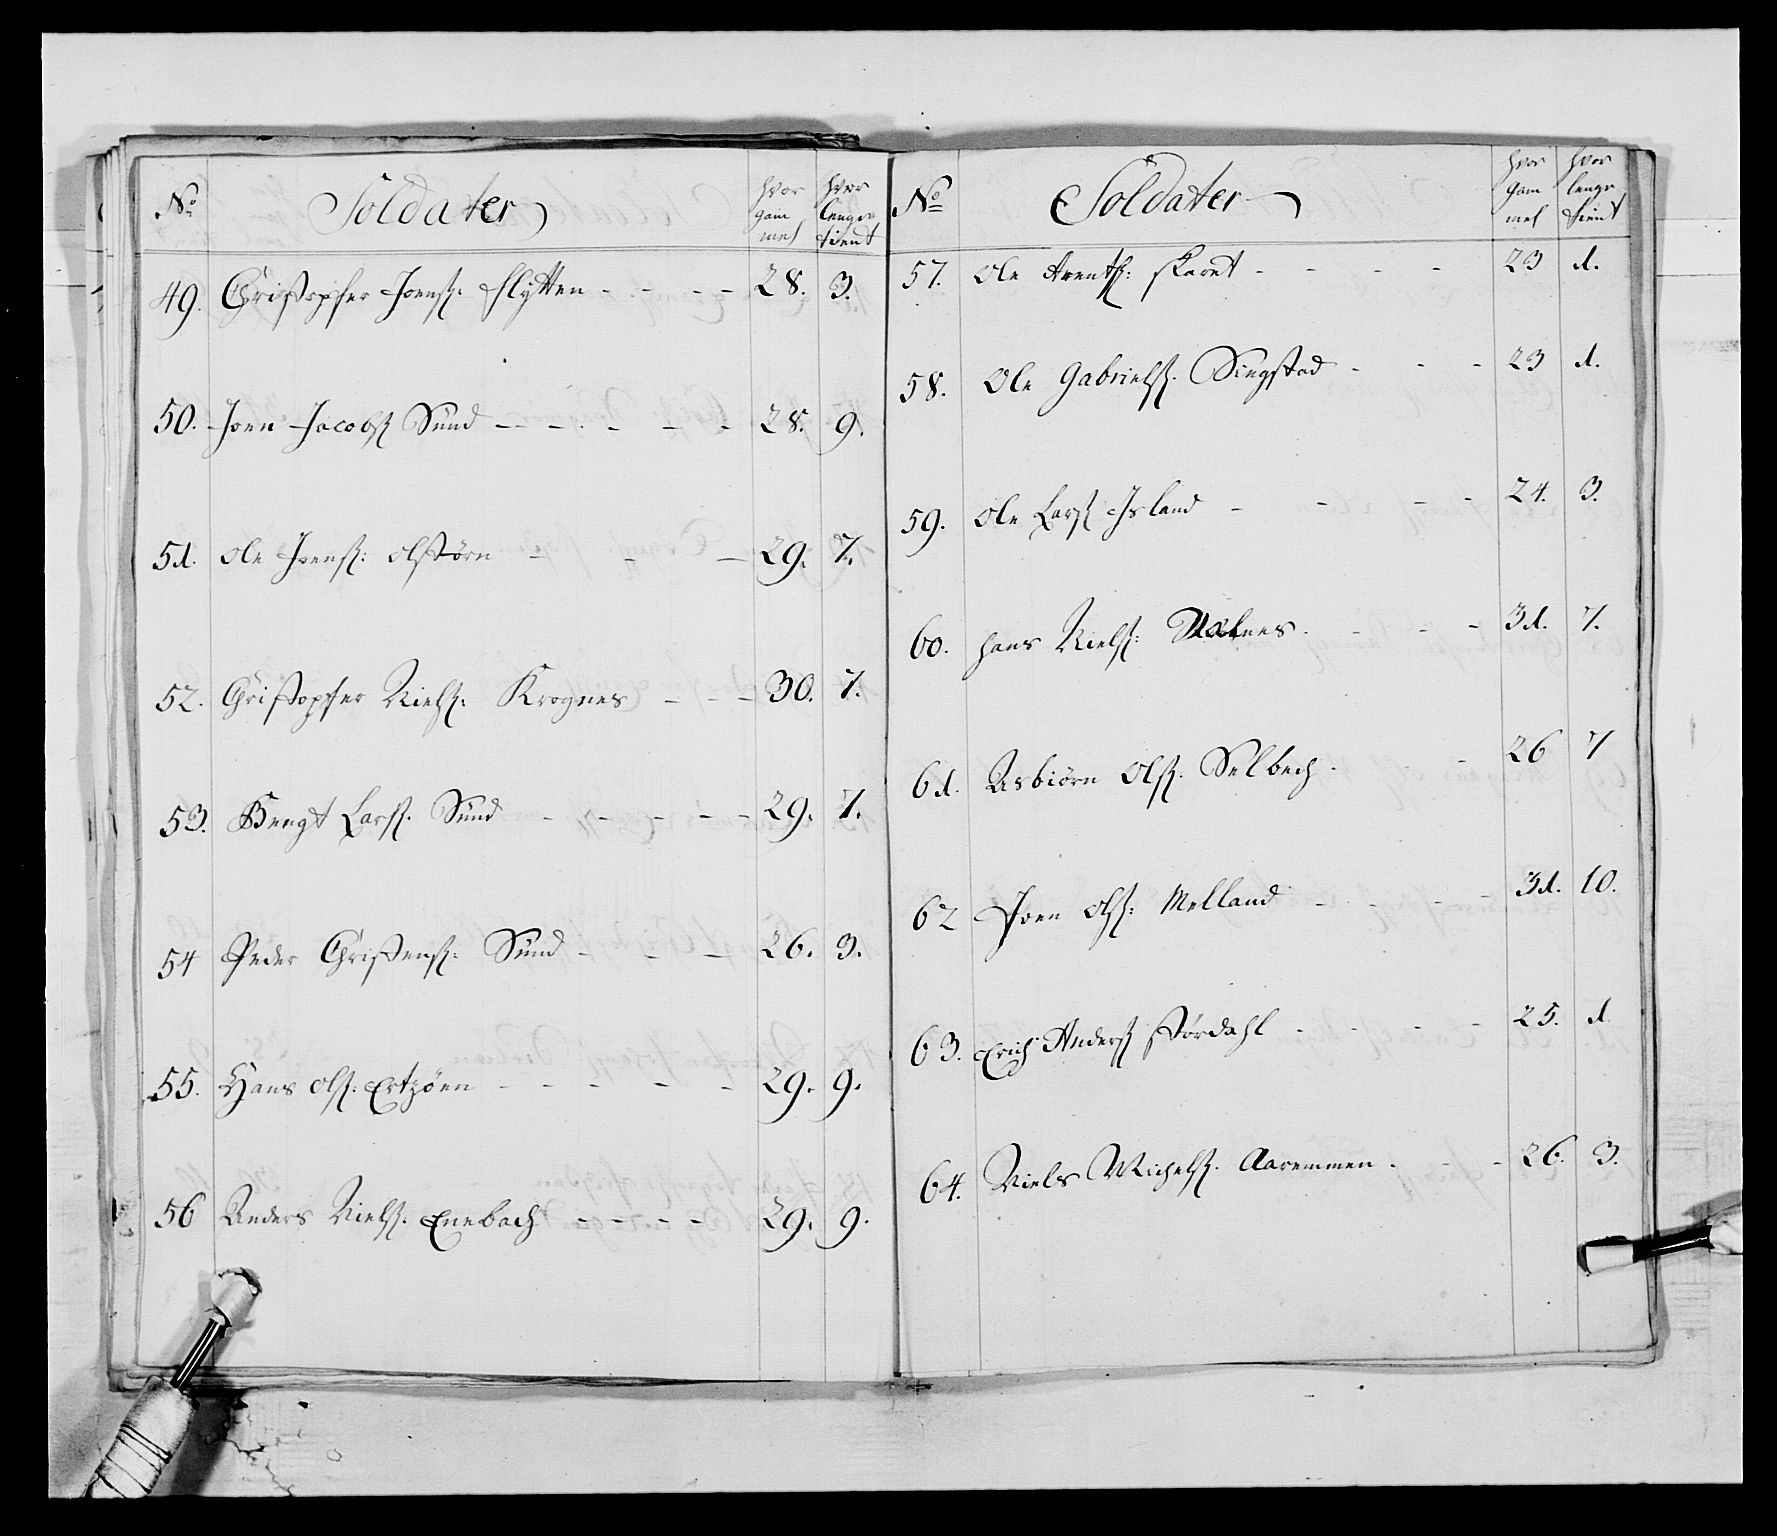 No Soldater hvor gam mel hvor lenge tient
49. Christopher Joensz. Flytten 28. 3.
50. Joen Jacobsz Sund 28. 9.
51. Ole Joensz: Olstørn 29. 7.
52. Christopher Nielsz. Krognes 30. 7.
53. Bengt Larsz. Sund 29. 7.
54 Peder Christensz: Sund 26. 3.
55. Hans Olsz. Ertzøen 29. 9.
56 Anders Nielsz. Enebach 29. 9.
No Soldater hvor gam mel hvor lenge tient
57. Ole Arentsz: Skaret 23 1.
58. Ole Gabrielsz. Singstad 23 1.
59. Ole Larsz Island 24. 3.
60. Hans Nielsz: 31. 7.
61. Asbiørn Olsz. Selbech 26 7
62 Joen Olsz: Melland 31. 10.
63. Erich Andersz Størdahl 25. 1.
64. Niels Michelsz. Aaremmen 26. 3.